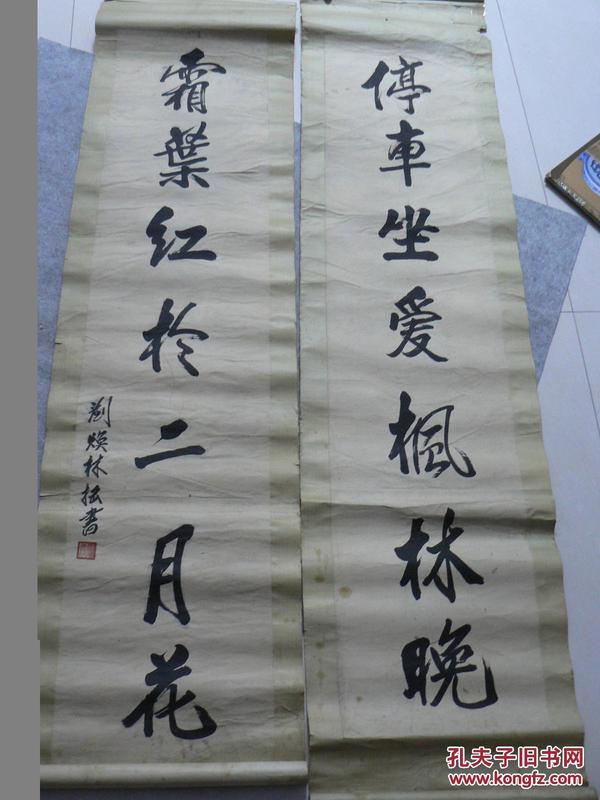 停車坐爱楓林晚
霜葉紅於二月花
劉焕林拙書
孔夫子旧书网
www.kongfz.com